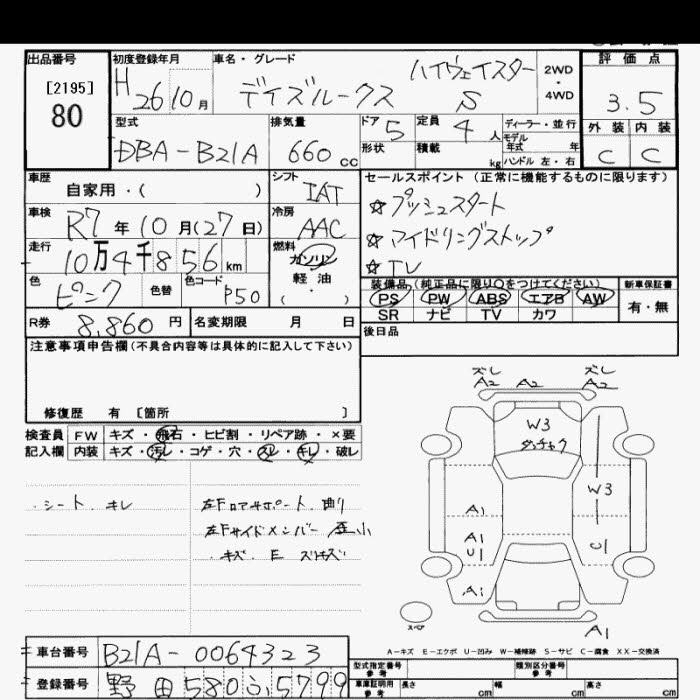 出品番号
[2195]
80
初度登録年月
H 26 10 月
車名・グレード
デイズルークス ハイウェイスター S
2WD
・
4WD
評価点
3.5
型式
DBA-B21A
排気量
660 cc
ドア 5
定員 4 人
形状
積載 kg
ディーラー・並行
モデル年式 年
ハンドル 左・右
外装 内装
C C
車歴
自家用・( )
シフト
IAT
車検
R7 年 10 月(27 日)
冷房
AAC
走行
10万4千856 km
燃料
ガソリン
軽油
( ・ )
色
ピンク
色替
色コード
P50
R券 8,860 円
名変期限 月 日
セールスポイント(正常に機能するものに限ります)
☆プッシュスタート
☆アイドリングストップ
☆TV
装備品(純正品に限り○をつけてください)
PS PW ABS エアB AW
SR ナビ TV カワ
新車保証書
有・無
後日品
注意事項申告欄(不具合内容等は具体的に記入して下さい)
修復歴 有 〔箇所 〕
検査員記入欄
FW キズ・飛石・ヒビ割・リペア跡・×要
内装 キズ・汚レ・コゲ・穴・スレ・キレ・破レ
・シート キレ
左Fコアサポート 曲り
左Fサイドメンバー 歪小
・キズ E
ズレ A2 A2 ズレ A2
W3
W3
A1
A1
U1
C1
A1
A1
スペア
A-キズ E-エクボ U-凹み W-補修跡 S-サビ C-腐食 XX-交換済
車台番号 B21A-0064323
登録番号 野田580ふ5799
型式指定番号
参考
類別区分番号
参考
車庫証明用
参考
長さ cm 幅 cm 高さ cm